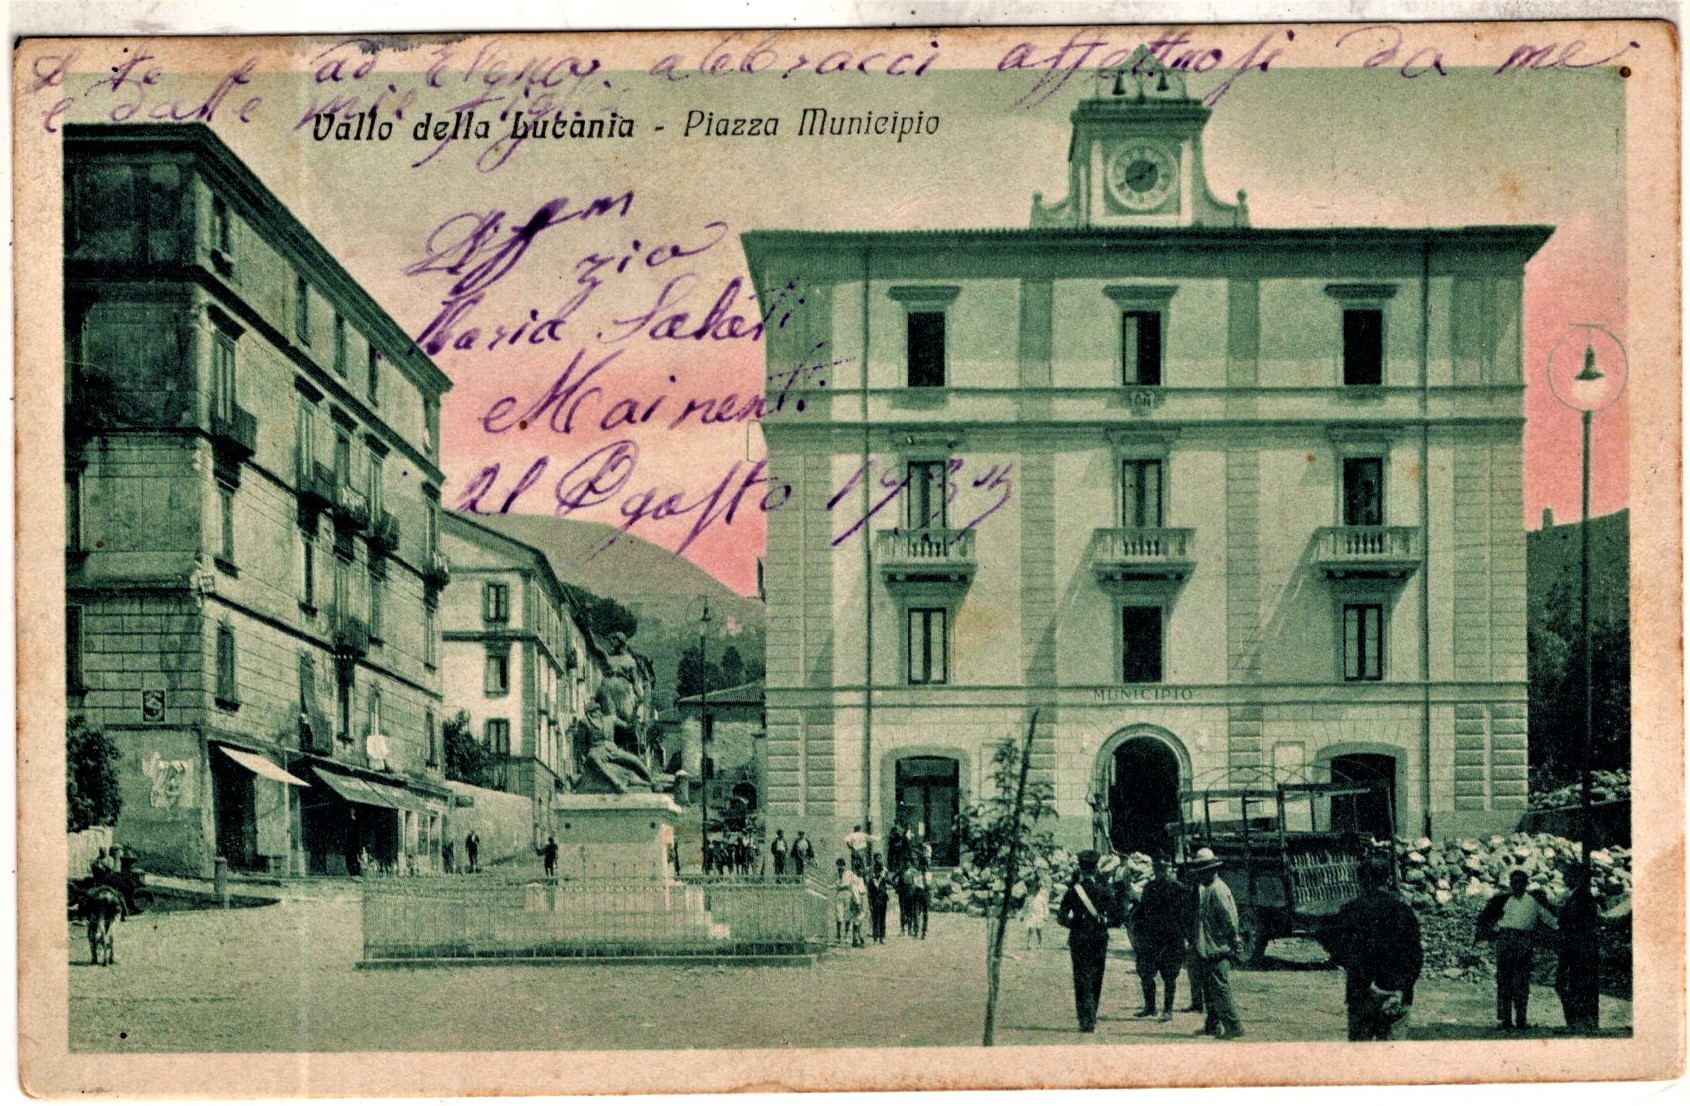 A te e ad Elena, abbracci affettuosi da me
e dalle mie figlie
Vallo della Lucania - Piazza Municipio
Aff.ma
zia
Maria
Mainenti
21 Agosto
MUNICIPIO